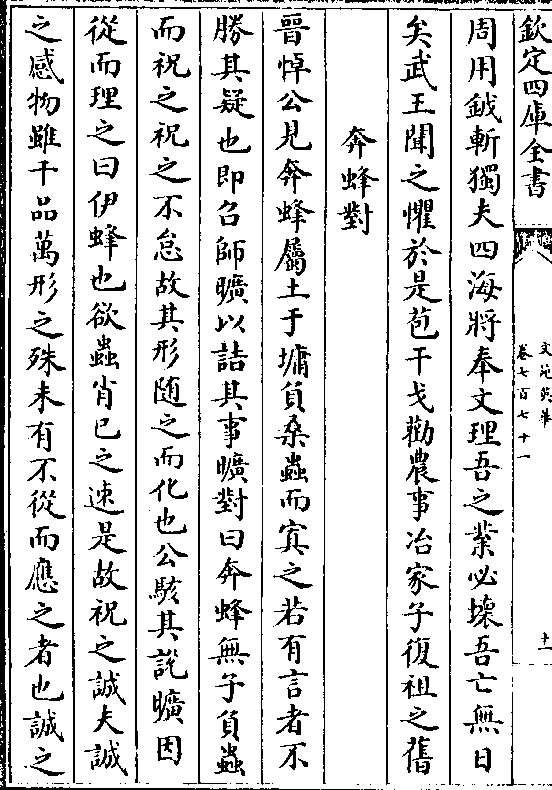 欽定四庫全書
文苑英華
卷七百七十一
十一
周用鉞斬獨夫四海將奉文理吾之業必壞吾亡無日
矣武王聞之懼於是苞干戈勸農事冶家子復祖之舊
奔蜂對
晉悼公見奔蜂屬土于墉負桑蟲而寘之若有言者不
勝其疑也即召師曠以詰其事曠對曰奔蜂無子負蟲
而祝之祝之不怠故其形随之而化也公駭其說曠因
從而理之曰伊蜂也欲蟲肖已之速是故祝之誠夫誠
之感物雖千品萬形之殊未有不從而應之者也誠之